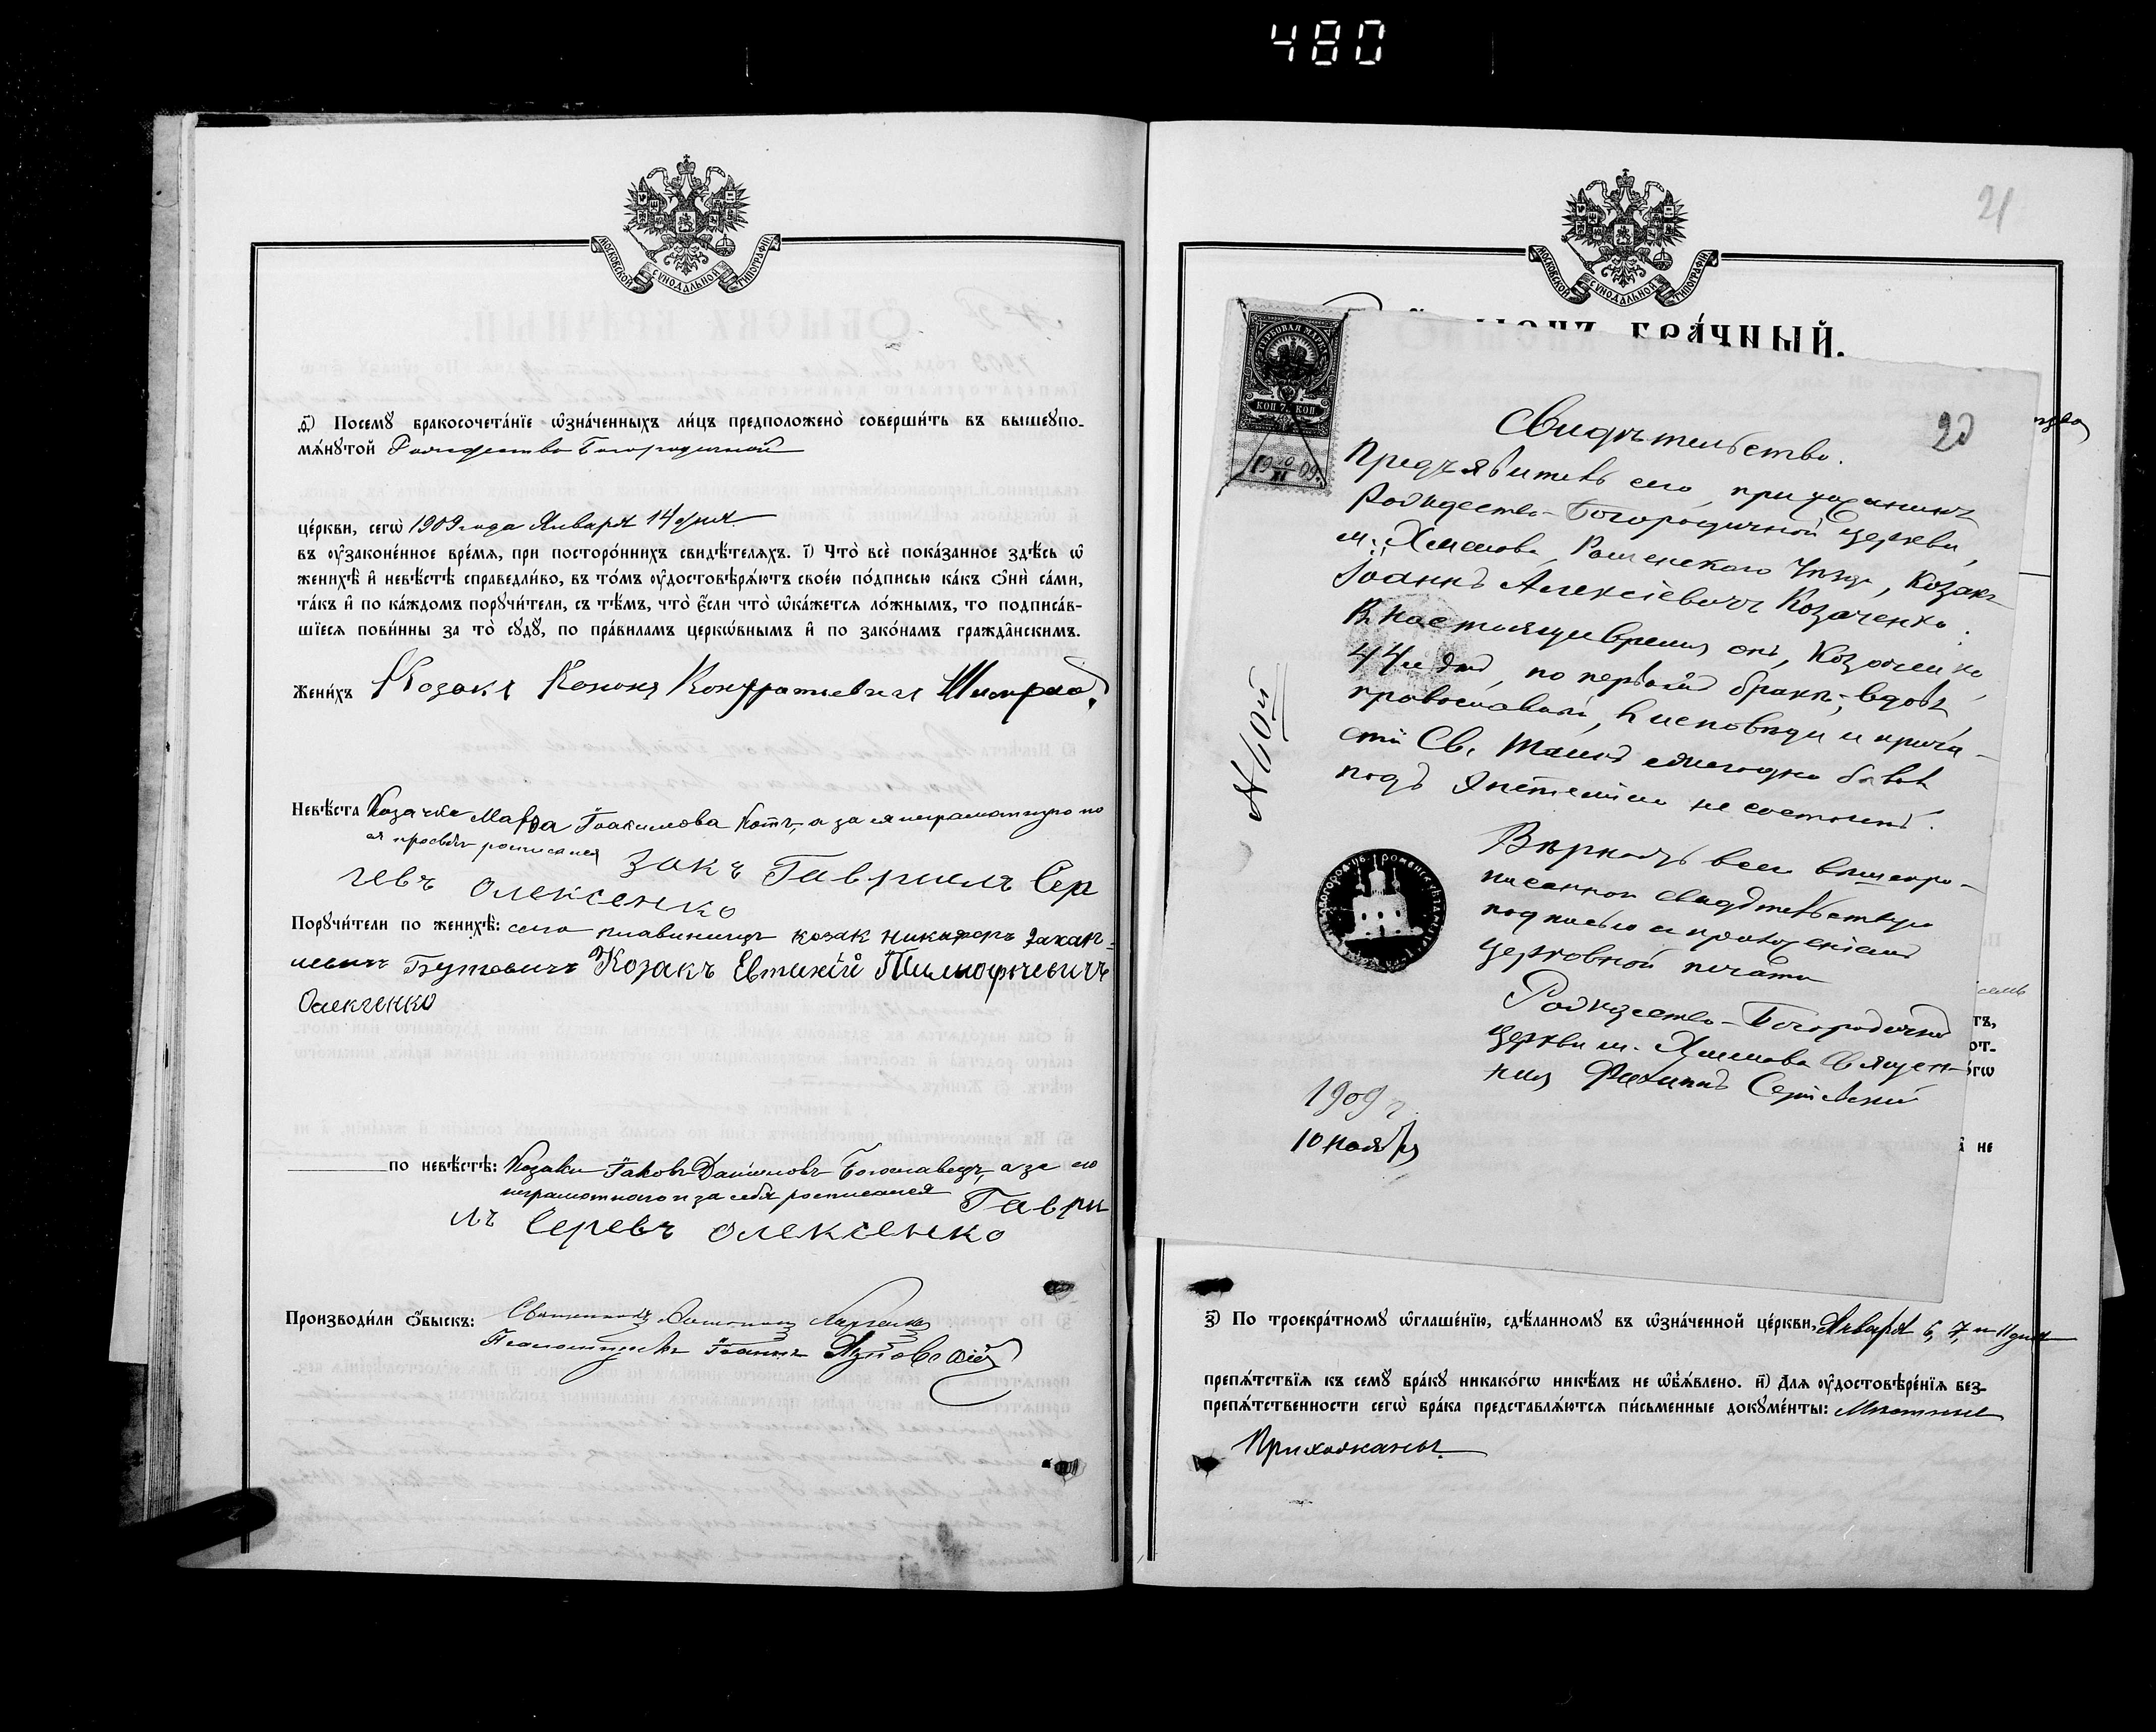 480
МОСКОВСКОЙ СУНОДАЛЬНОЙ ТИПОГРАФІИ
ѳ҃) Посемꙋ бракосочета́нїе ѡ҆зна́ченныхъ ли́цъ предположено̀ соверши́ть въ вышеꙋпо-
мѧ́нꙋтой Рождество Богородичной
це́ркви, сегѡ̀ 1909 года Января 14 дня
въ ᲂу҆зако́ненное вре́мѧ, при посторо́ннихъ свидѣ́телѧхъ. і҃) Что̀ всѐ пока́занное здѣ́сь ѡ҆
женихѣ̀ и҆ невѣ́стѣ справедли́во, въ то́мъ ᲂу҆достовѣрѧ́ютъ свое́ю по́дписью ка́къ ѻ҆нѝ са́ми,
та́къ и҆ по ка́ждомъ порꙋчи́тели, съ тѣ́мъ, что̀ є҆́сли что̀ ѡ҆ка́жетсѧ ло́жнымъ, то подписа́в-
шїесѧ пови́нны за то̀ сꙋдꙋ̀, по пра́виламъ церко́внымъ и҆ по зако́намъ гражда́нскимъ.
Жени́хъ Козакъ Кононъ Кондратіевичъ
Невѣ́ста Козачка Марѳа Іоакимова Котъ, а за ея неграмотную по
ея просьбѣ росписался закъ Гавриилъ Сер
гевъ Олексенко
Порꙋчи́тели по женихѣ̀: села козак Никифоръ Захар-
іевичъ Бутовичъ Козакъ Евтихій Тимофѣевичъ
Олексенко
по невѣ́стѣ: Козаки Іаковъ Даніиловъ Богославецъ, а за его
неграмотного и за себя росписался Гаври
лъ Серевъ Олексенко
Производи́ли ѻ҆́быскъ: Священникъ
Псаломщикъ Іоаннъ
21
МОСКОВСКОЙ СУНОДАЛЬНОЙ ТИПОГРАФІИ
БРА́ЧНЫЙ.
ГЕРБОВАЯ МАРКА
КОП 75 КОП
19 10/XI 09.
20
Свидѣтельство.
Предъявитель сего, прихожанинъ
Рождество-Богородичной церкви,
м. Хмелова, Роменскаго уѣзда, козакъ
Іоаннъ Алексіевичъ Козаченко;
Въ настоящее время онъ, Козаченко,
44хъ лѣтъ, по первомъ бракѣ, вдовъ,
православный, въ исповѣди и прича-
стіи Св. Таинъ ежегодно бывалъ
подъ не состоитъ.
№ 60й
Вѣрность всего вышепро-
писаннаго свидѣтельствую
подписью и приложеніемъ
церковной печати
Рождество-Богородичной
церкви м. Хмелова Священ-
никъ
1909 г.
10 ноября
з҃) По троекра́тномꙋ ѡ҆глаше́нїю, сдѣ́ланномꙋ въ ѡ҆зна́ченной це́ркви, Января 6, 7, и 11 дня
препѧ́тствїѧ къ семꙋ̀ бра́кꙋ никако́гѡ никѣ́мъ не ѡ҆б̾ѧ́влено. и҃) Длѧ ᲂу҆достовѣре́нїѧ без-
препѧ́тственности сегѡ̀ бра́ка представлѧ́ютсѧ пи́сьменные докꙋме́нты: Мѣстные
Прихожаны.